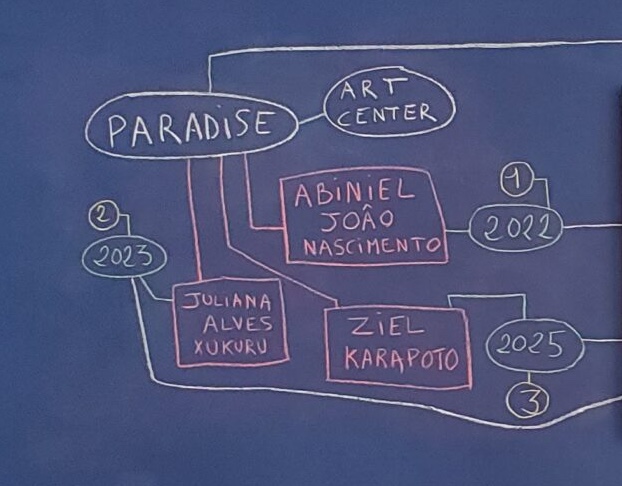 ART
CENTER
PARADISE
ABINIEL
JOÂO
NASCIMENTO
1
2022
2
2023
JULIANA
ALVES
XUKURU
ZIEL
KARAPOTO
2025
3